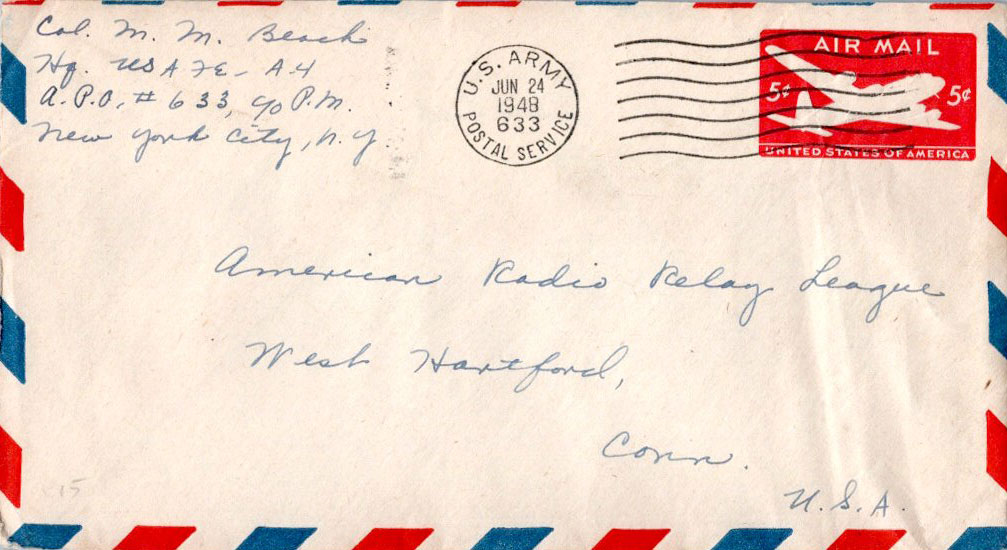 Col. M. M. Beach
Hq. USAFE - A-4
A.P.O. # 633, c/o P.M.
New York City, N.Y.
U.S. ARMY
JUN 24
1948
633
POSTAL SERVICE
AIR MAIL
5¢ 5¢
UNITED STATES OF AMERICA
American Radio Relay League
West Hartford,
Conn.
U.S.A.
15